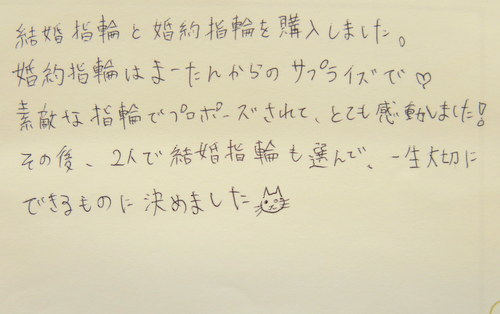 結婚指輪と婚約指輪を購入しました。
婚約指輪はまーたんからのサプライズで♡
素敵な指輪でプロポーズされて、とても感動しました!
その後、2人で結婚指輪も選んで、一生大切に
できるものに決めました